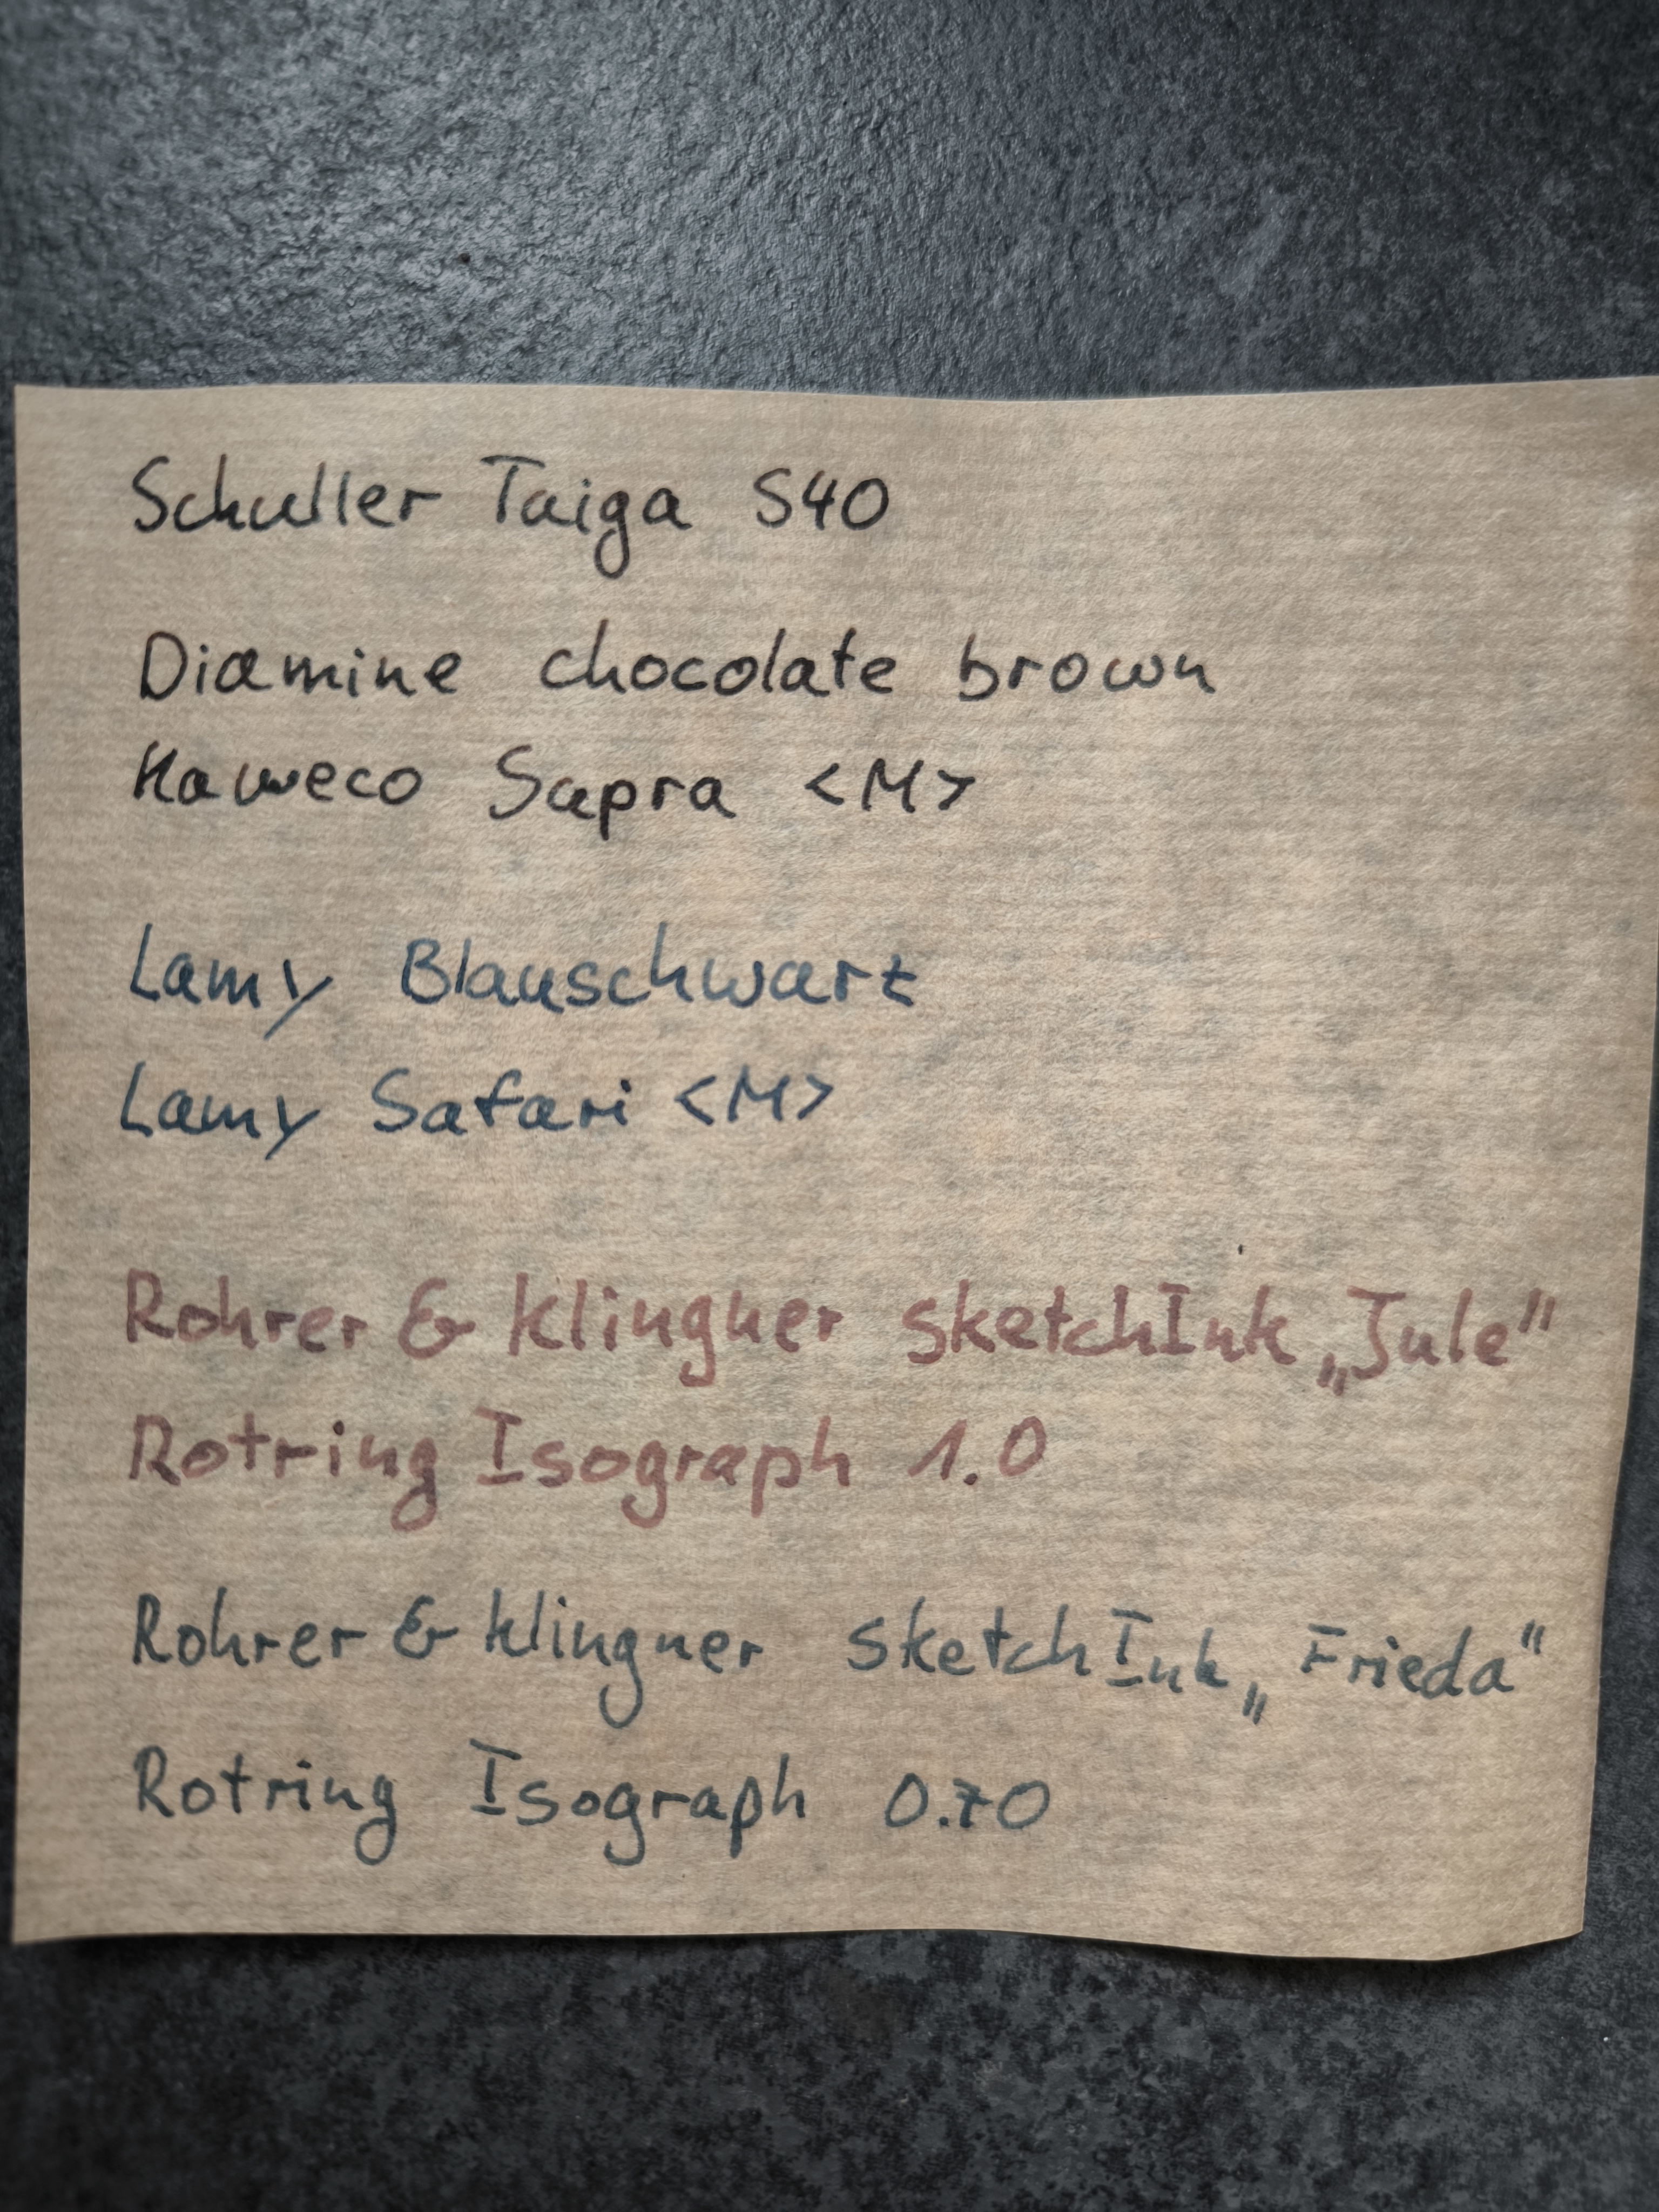 Schuller Taiga S40
Diamine chocolate brown
Kaweco Sapra <M>
Lamy Blauschwarz
Lamy Safari <M>
Rohrer & Klingner SketchInk „Jule“
Rotring Isograph 1.0
Rohrer & Klingner SketchInk „Frieda“
Rotring Isograph 0.70